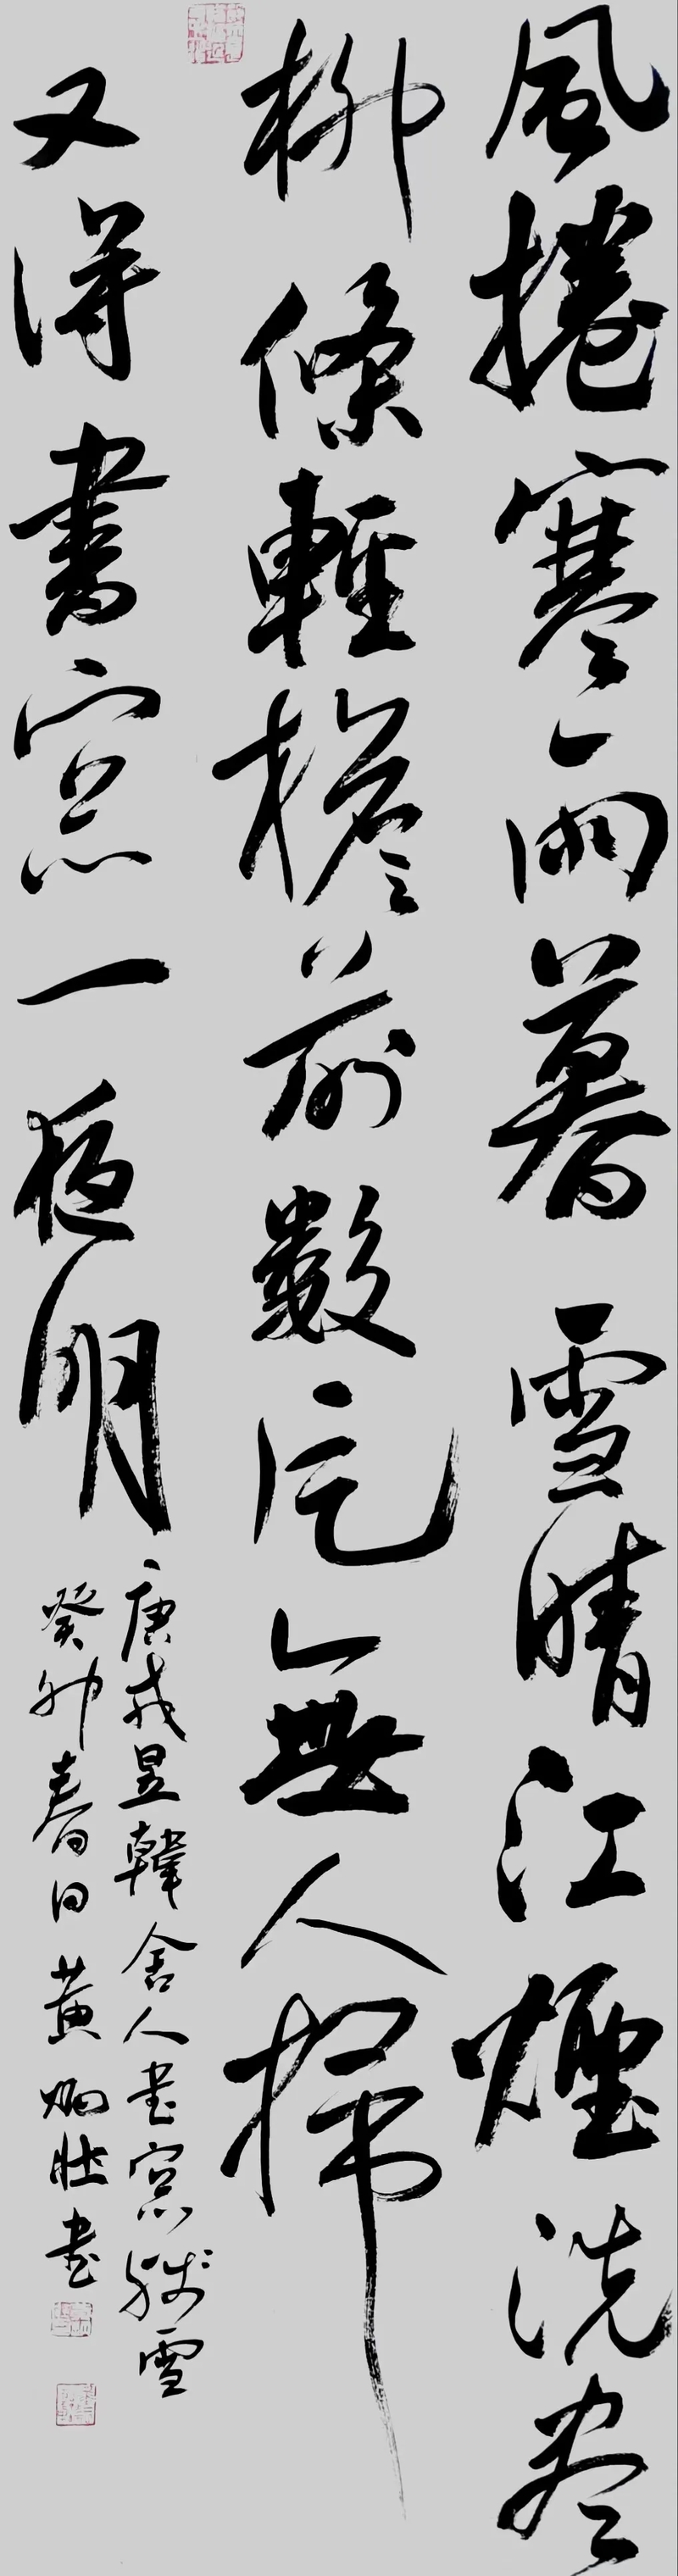 風捲寒雨暮雪晴江煙洗尽
柳條輕檐前數片無人掃
又得書窓一夜明
唐戎昱韓舍人書窓殘雪
癸卯春日黄炳壯書